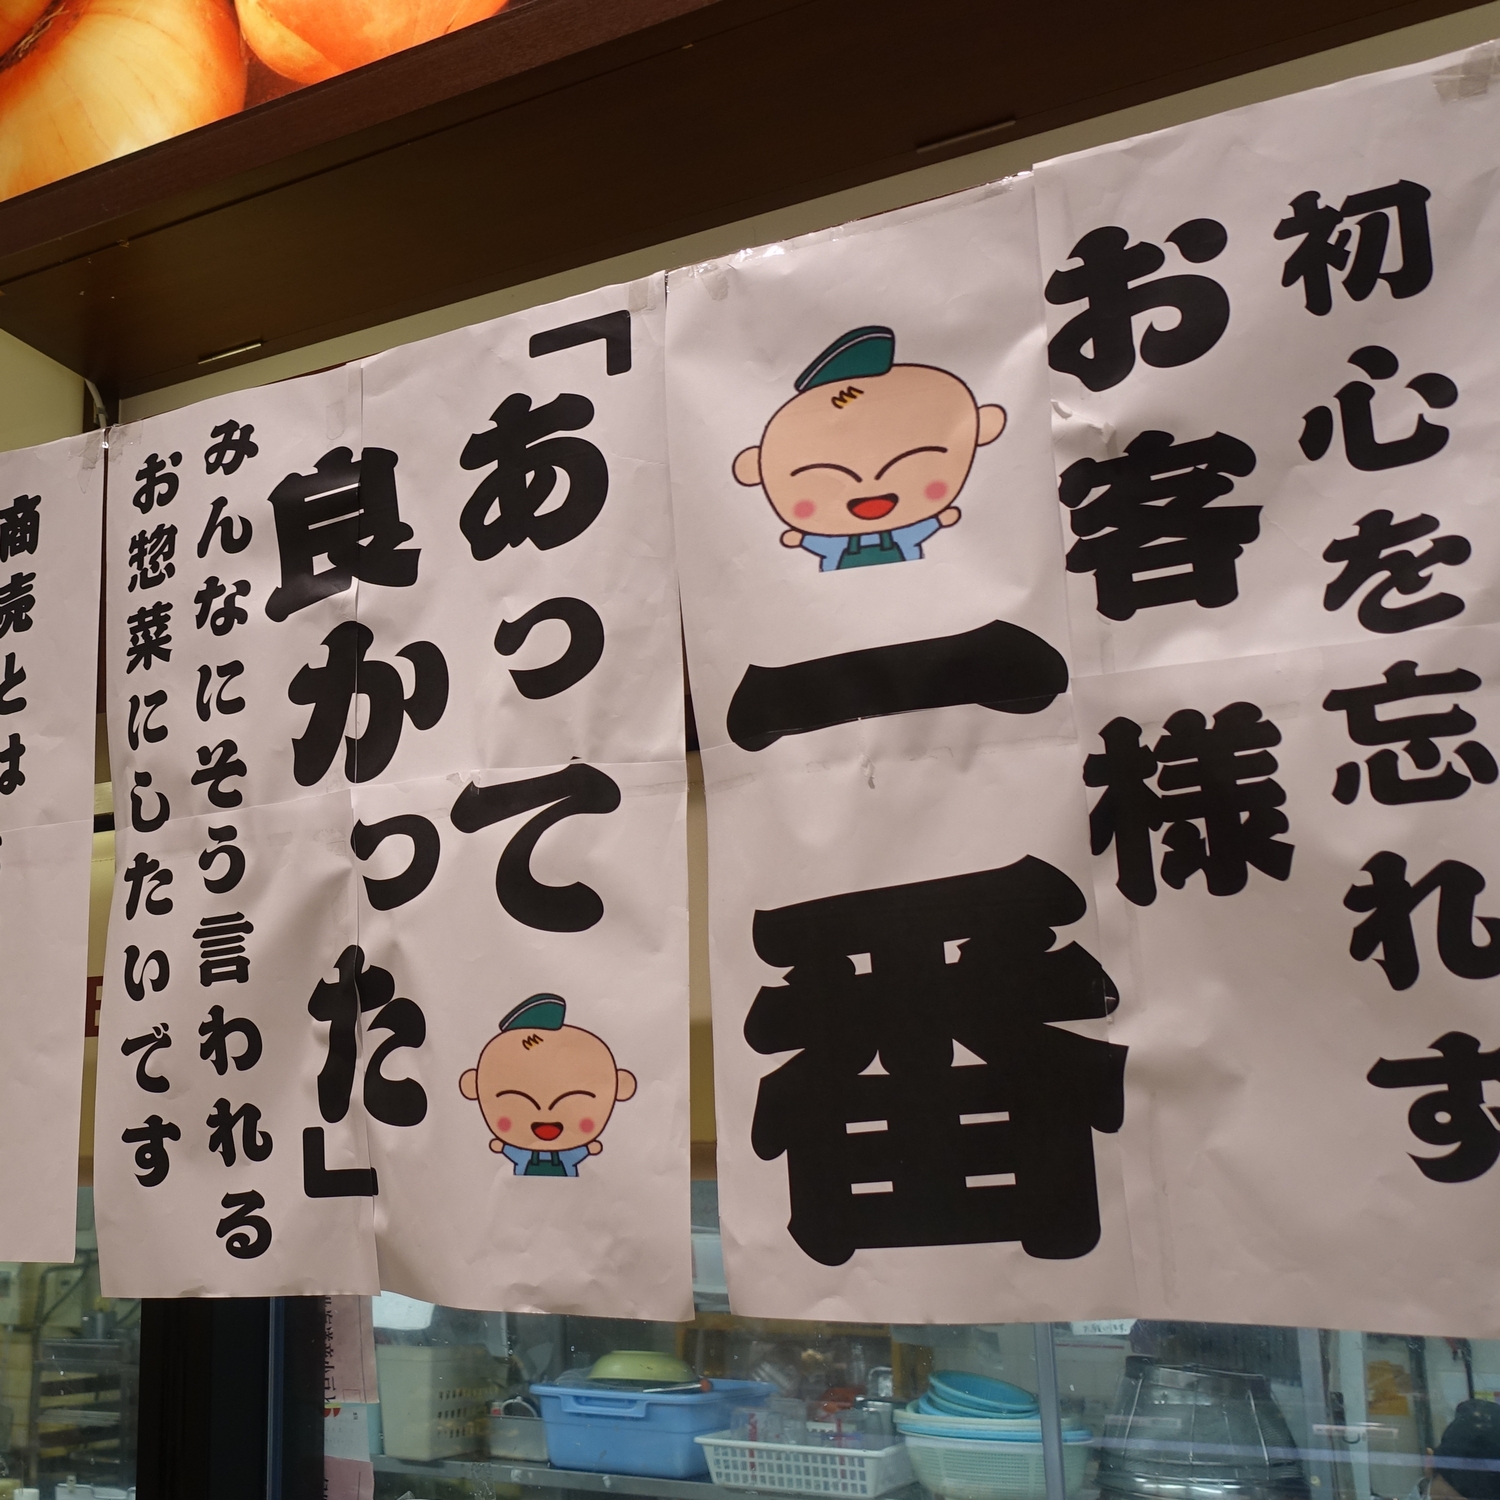 初心を忘れず
お客様
一番
「あって
良かった」
みんなにそう言われる
お惣菜にしたいです
商売とは